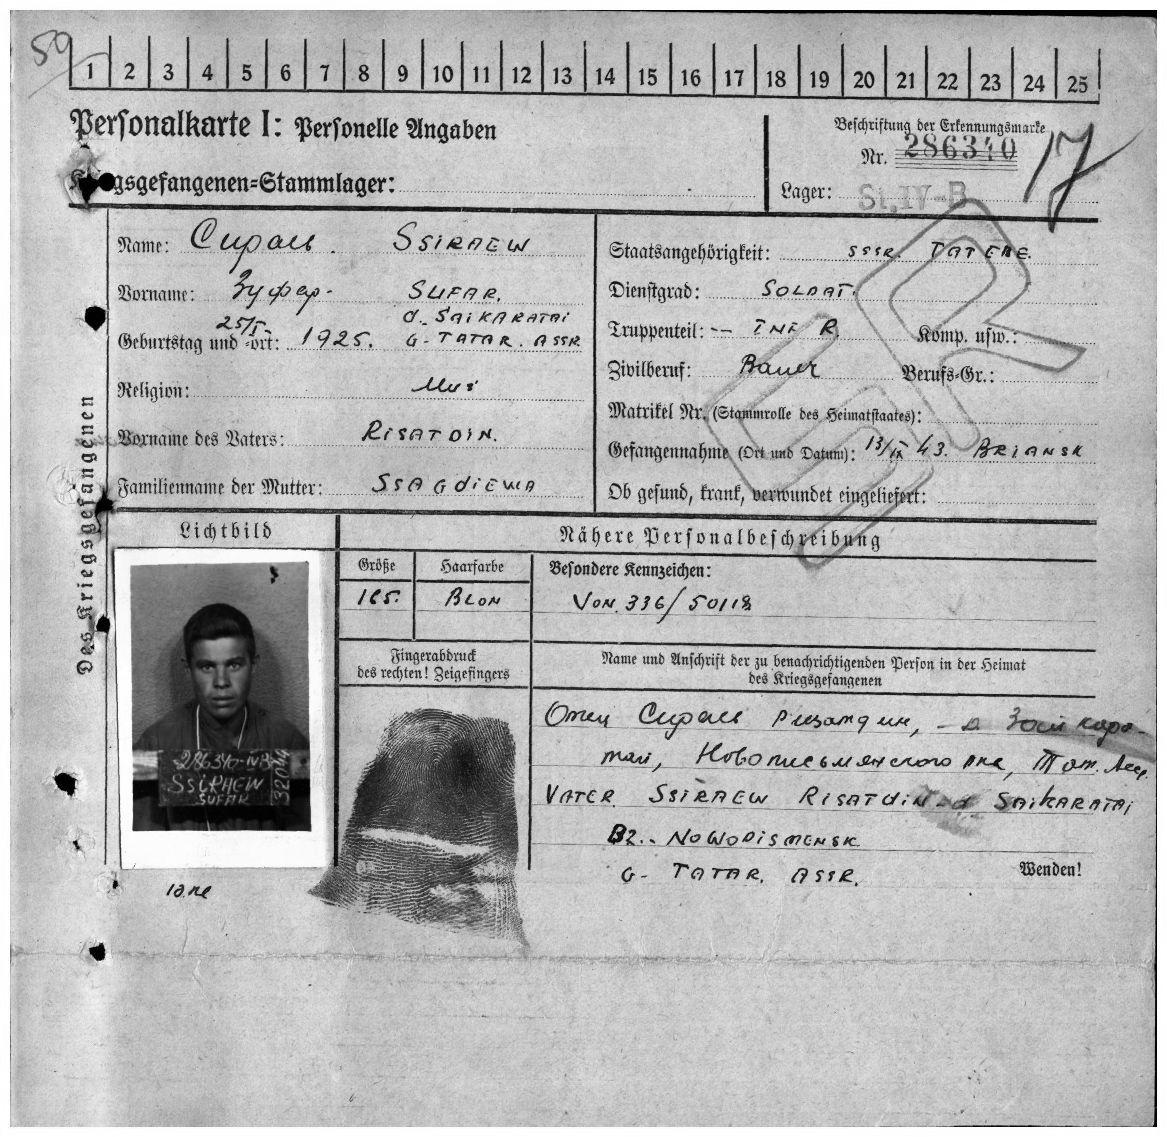 59
1 2 3 4 5 6 7 8 9 10 11 12 13 14 15 16 17 18 19 20 21 22 23 24 25
Personalkarte I: Personelle Angaben
Kriegsgefangenen=Stammlager:
Beschriftung der Erkennungsmarke
Nr. 286340
17
Lager: St.IV-B
Des Kriegsgefangenen
Name: Сираев. SSIRAEW
Vorname: Зуфар. SUFAR.
25/5. d. SAIKARATAI
Geburtstag und =ort: 1925. G-TATAR. ASSR
Religion: Mus
Vorname des Vaters: RISATDIN.
Familienname der Mutter: SSAGDIEWA
Staatsangehörigkeit: SSSR. TATERE.
Dienstgrad: SOLDAT.
Truppenteil: -- INF R Komp. usw.:
Zivilberuf: Bauer Berufs=Gr.:
Matrikel Nr. (Stammrolle des Heimatstaates):
Gefangennahme (Ort und Datum): 13/IX 43. BRIANSK
Ob gesund, krank, verwundet eingeliefert:
SR
Lichtbild
Nähere Personalbeschreibung
Größe Haarfarbe Besondere Kennzeichen:
165. BLON VON 336/50118
Fingerabdruck
des rechten! Zeigefingers
Name und Anschrift der zu benachrichtigenden Person in der Heimat
des Kriegsgefangenen
Отец Сираев Ризатдин, - д Зайкара-
тай, Новописьмянского рна, Тат. Асср.
VATER SSIRAEW RISATDIN d SAIKARATAI
BZ.. NOWOPISMENSK
G- TATAR. ASSR.
Wenden!
286340-IVB
SSIRAEW
SUFAR